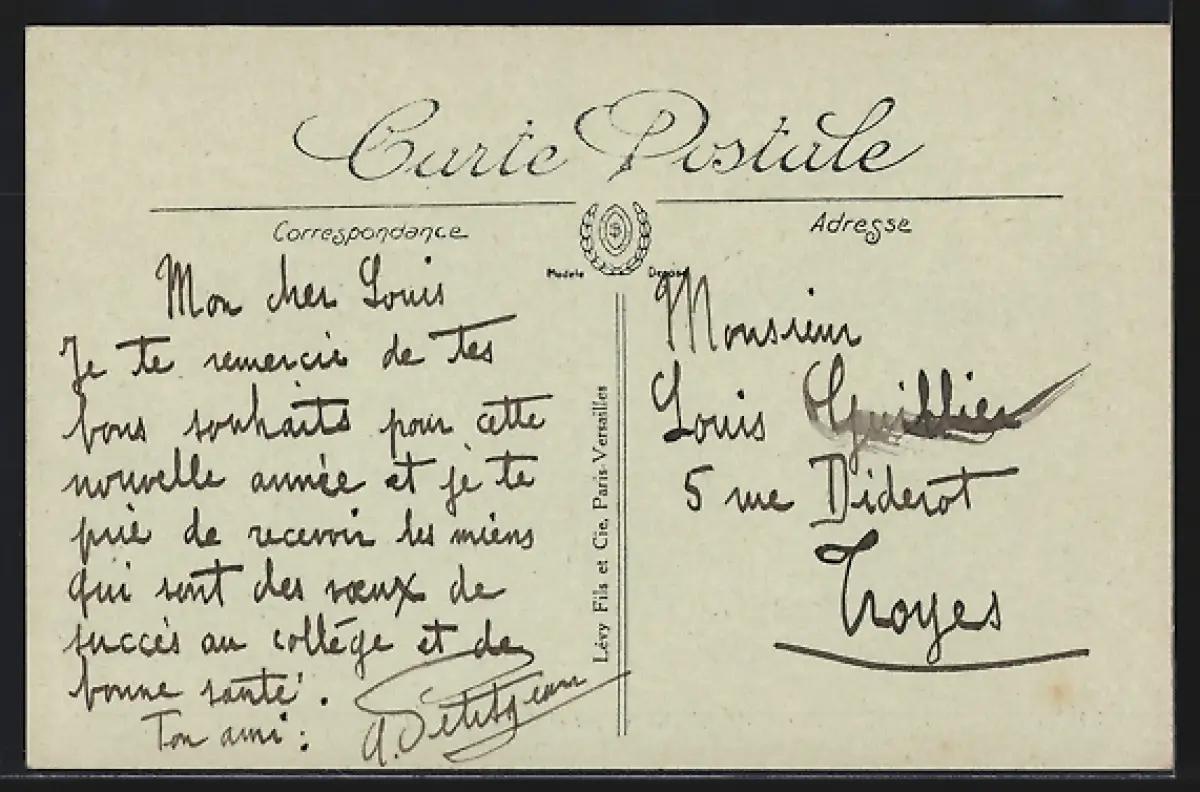 Carte Postale
Correspondance
Adresse
Modèle Déposé
Mon cher Louis
Je te remercie de tes
bons souhaits pour cette
nouvelle année et je te
prie de recevoir les miens
qui sont des vœux de
succès au collége et de
bonne santé.
Ton ami :
A. Petitjean
Lévy Fils et Cie, Paris-Versailles
Monsieur
Louis Guillier
5 rue Diderot
Troyes